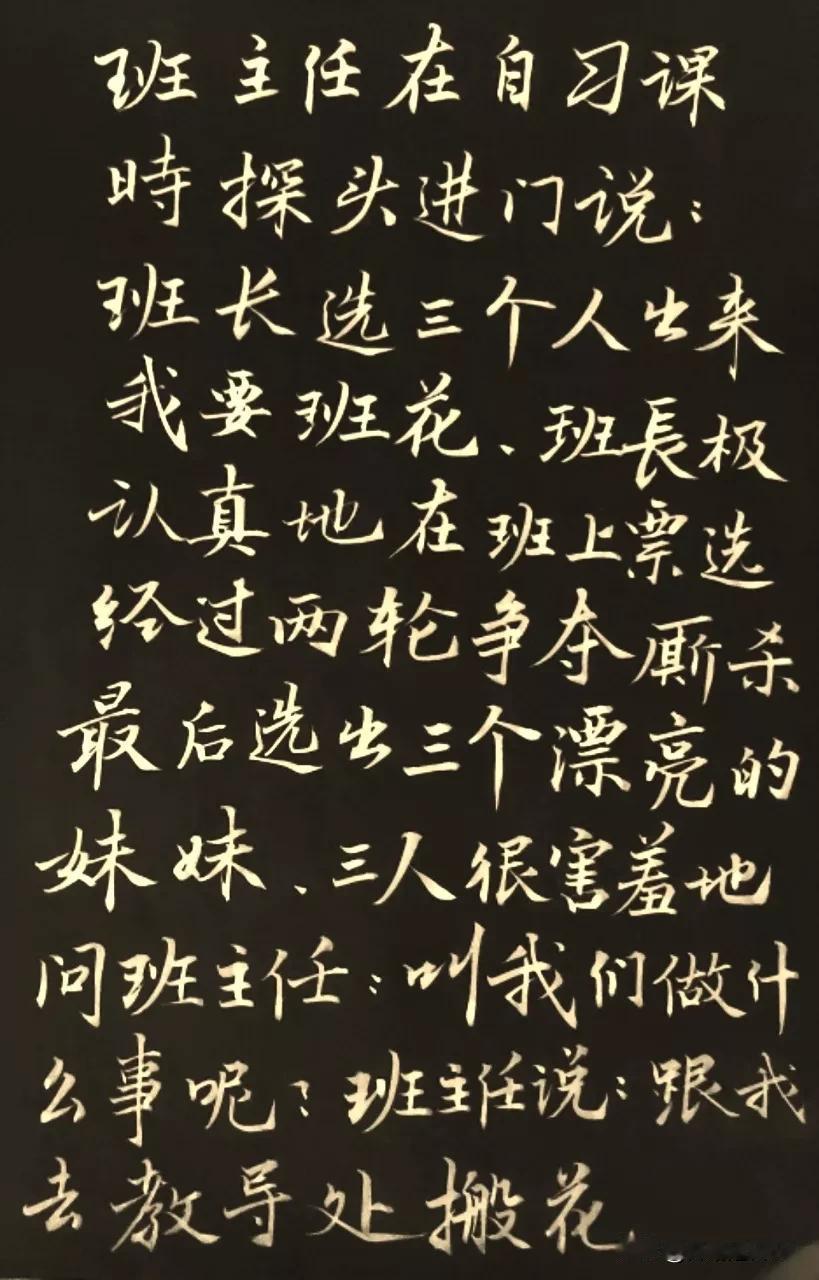 班主任在自习课
時探头进门说：
班长选三个人出来
我要班花、班長极
认真地在班上票选
经过两轮争夺厮杀
最后选出三个漂亮的
妹妹、三人很害羞地
问班主任：叫我们做什
么事呢？班主任说：跟我
去教导处搬花